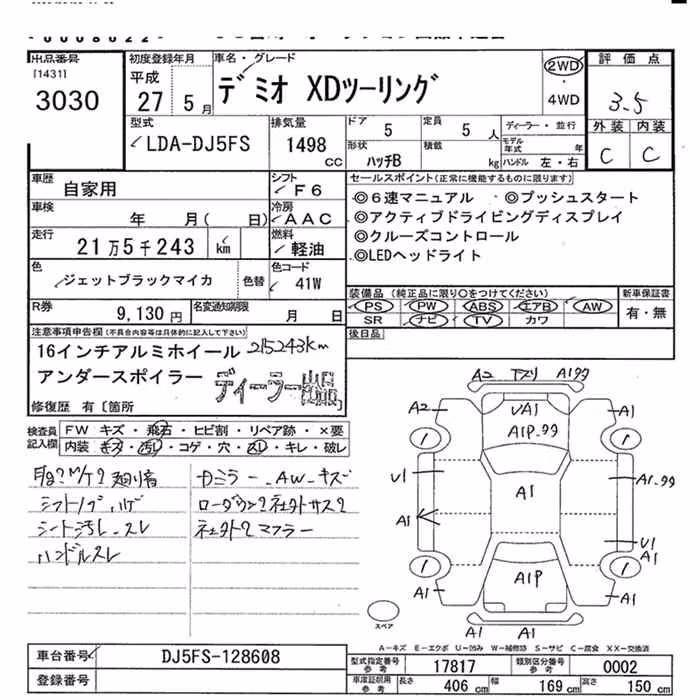 出品番号
[1431]
3030
初度登録年月
平成
27 5月
車名・グレード
デミオ XDツーリング
2WD
・
4WD
評価点
3.5
外装 内装
C C
型式
LDA-DJ5FS
排気量
1498
CC
ドア
5
定員
5 人
ディーラー・並行
モデル年式 年
形状
ハッチB
積載
kg
ハンドル 左・右
車歴
自家用
シフト
F6
車検
年 月( 日)
冷房
AAC
走行
21万5千243 km
燃料
軽油
色
ジェットブラックマイカ
色替
色コード
41W
R券
9,130円
名変通知期限
月 日
セールスポイント(正常に機能するものに限ります)
◎6速マニュアル ◎プッシュスタート
◎アクティブドライビングディスプレイ
◎クルーズコントロール
◎LEDヘッドライト
装備品(純正品に限り○をつけてください)
PS PW ABS エアB AW
SR ナビ TV カワ
新車保証書
有・無
後日品
注意事項申告欄(不具合内容等は具体的に記入して下さい)
16インチアルミホイール 215243km
アンダースポイラー ディーラー出品
修復歴 有〔箇所
検査員記入欄
FW キズ・飛石・ヒビ割・リペア跡・×要
内装・キズ・汚レ・コゲ・穴・スレ・キレ・破レ
シフトノブ ハゲ
シート汚レ.スレ
ハンドルスレ
カミラー.AW.キズ
ローダウン?社外サス?
社外?マフラー
A2 下スリ A1 99
A2
UA1
A1P.99
A1
U1
A1
A1.99
A1
U1
A1
A1P
A1
A1
A1 A1
スペア
A-キズ E-エクボ U-凹み W-補修跡 S-サビ C-腐食 XX-交換済
車台番号
DJ5FS-128608
登録番号
型式指定番号 参考
17817
類別区分番号 参考
0002
車庫証明用 参考
長さ 406 cm 幅 169 cm 高さ 150 cm